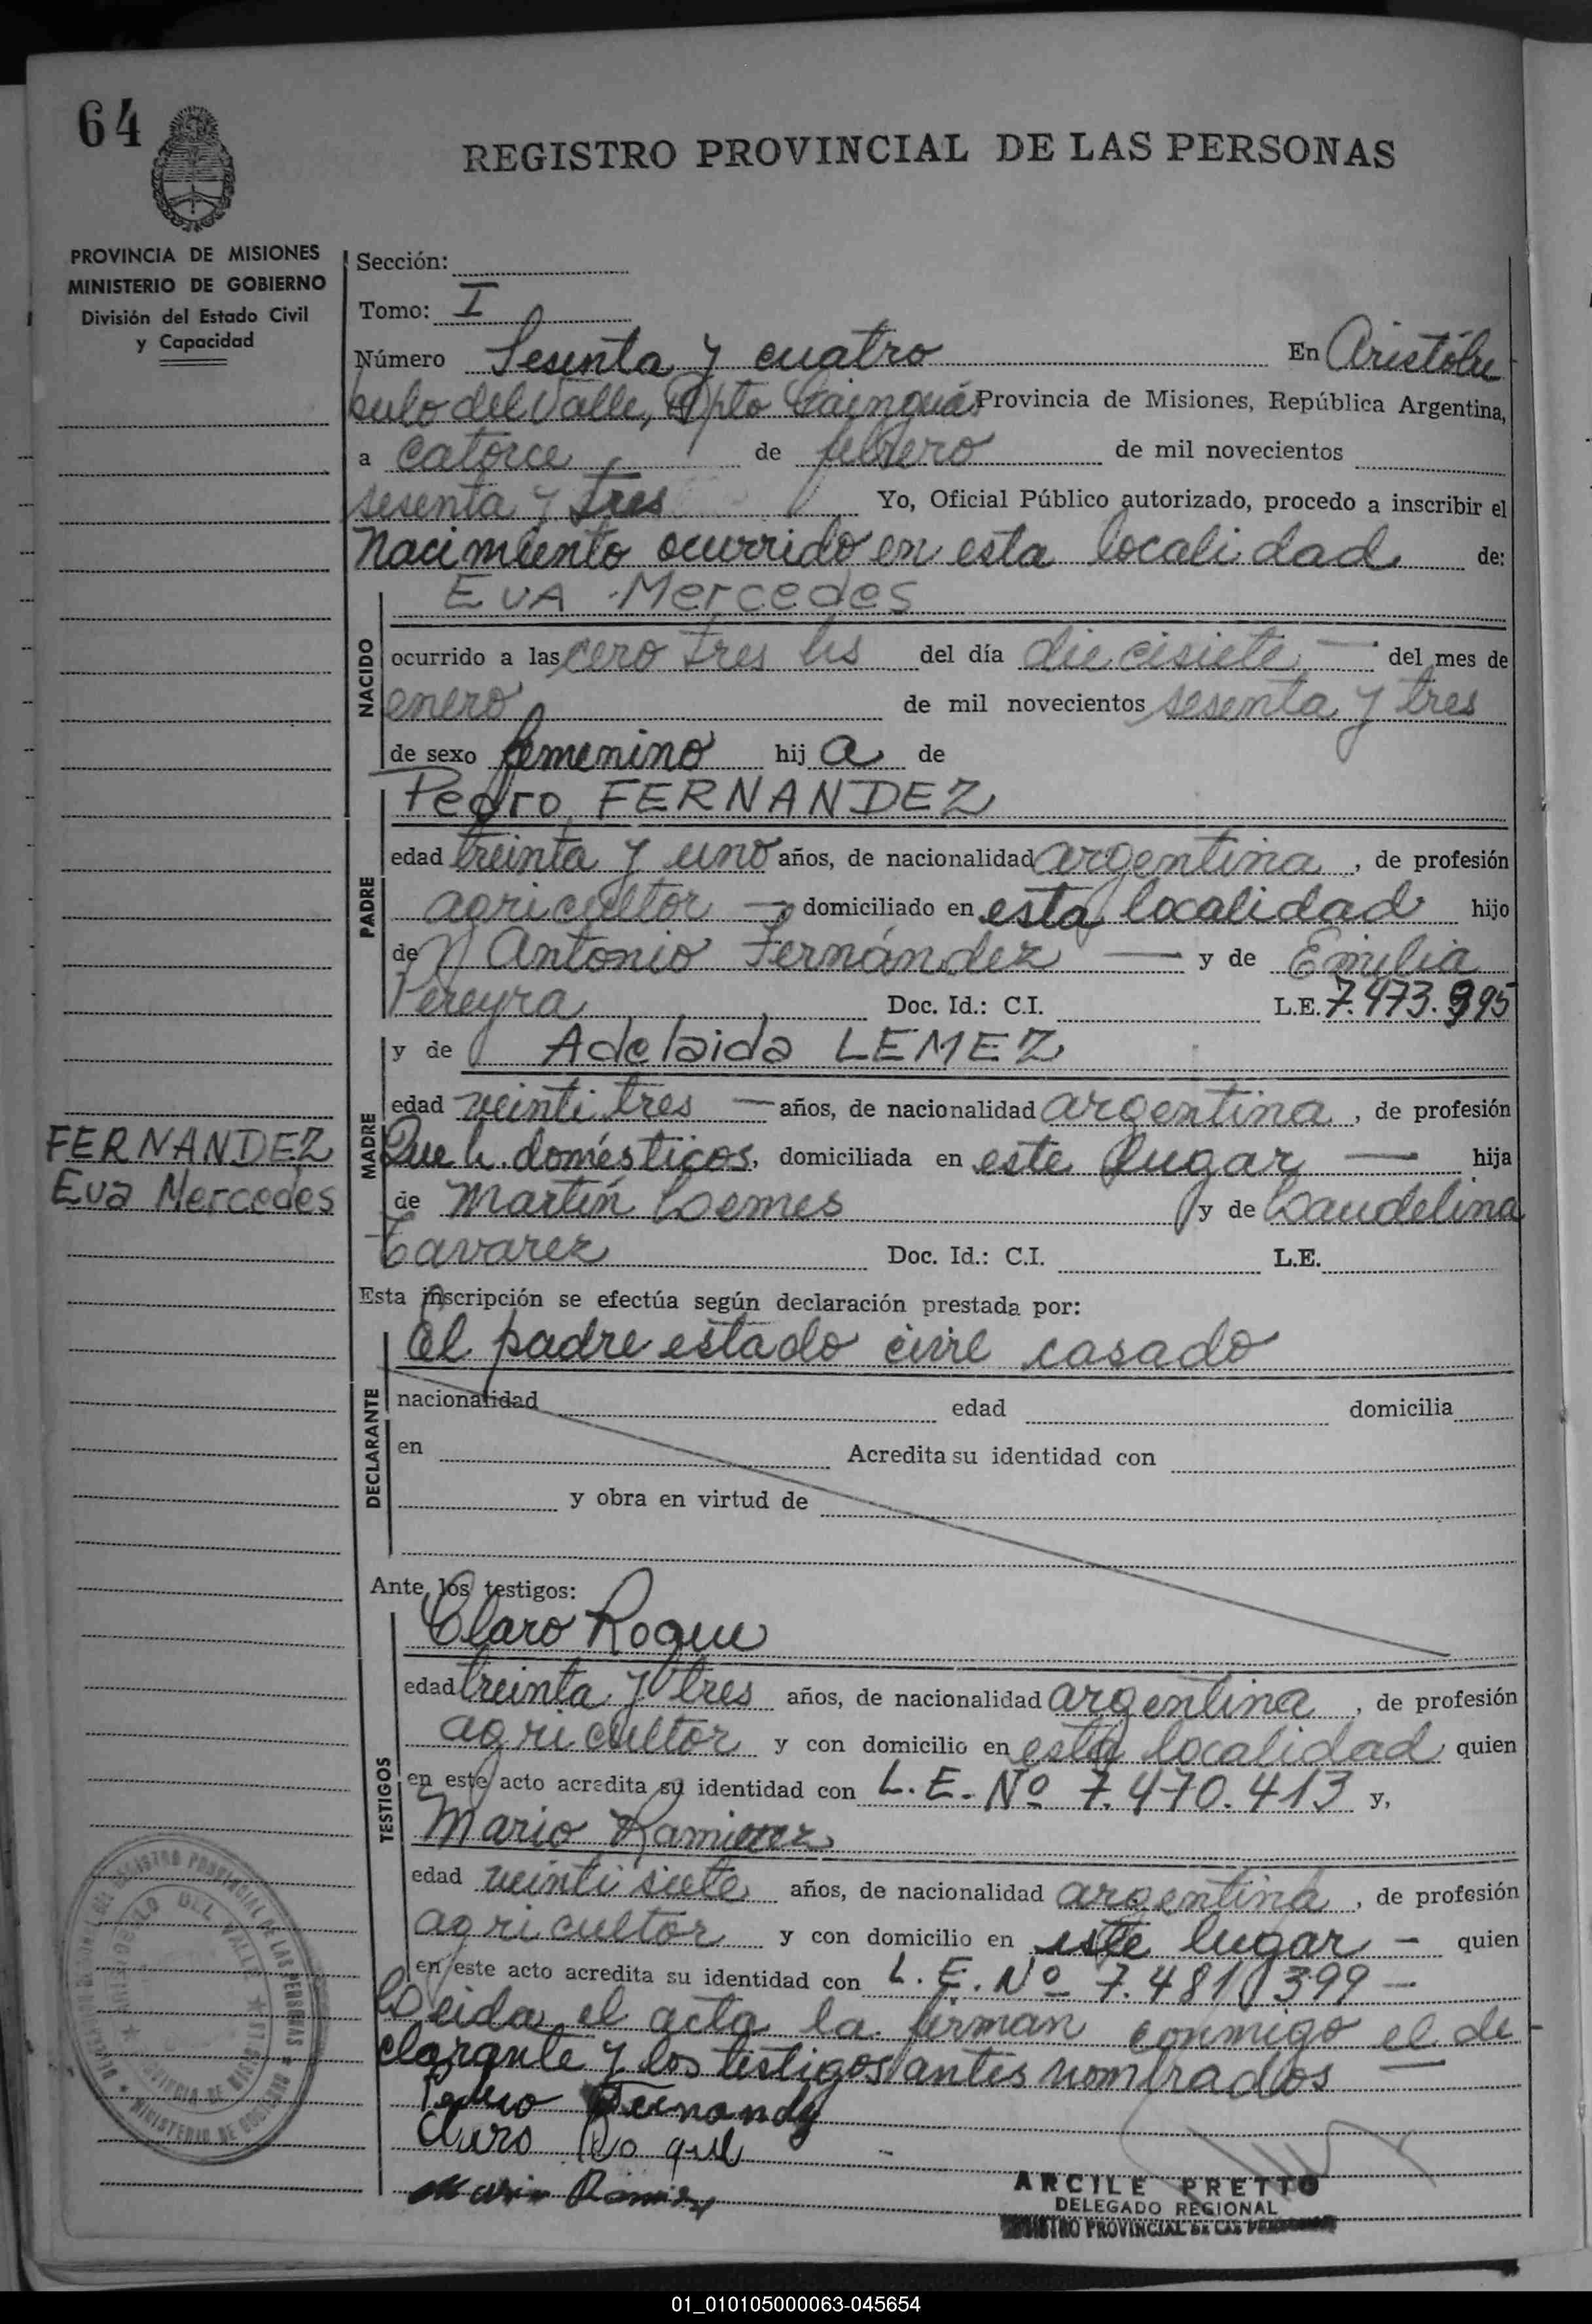 64
REGISTRO PROVINCIAL DE LAS PERSONAS
PROVINCIA DE MISIONES
MINISTERIO DE GOBIERNO
División del Estado Civil
y Capacidad
Sección:
Tomo: I
Número Sesenta y cuatro En Aristólu
bulo del Valle, Dpto Cainguás Provincia de Misiones, República Argentina,
a catorce de febrero de mil novecientos
sesenta y tres Yo, Oficial Público autorizado, procedo a inscribir el
Nacimiento ocurrido en esta localidad de:
EVA Mercedes
NACIDO
ocurrido a las cero tres hs del día diecisiete — del mes de
enero de mil novecientos sesenta y tres
de sexo femenino hij a de
Pedro FERNANDEZ
PADRE
edad treinta y uno años, de nacionalidad argentina, de profesión
agricultor — domiciliado en esta localidad hijo
de Antonio Fernández — y de Emilia
Pereyra Doc. Id.: C.I. L.E. 7.473.995
y de Adelaida LEMEZ
MADRE
edad veinti tres — años, de nacionalidad argentina, de profesión
Que h. domésticos, domiciliada en este lugar — hija
de Martín Lemes y de Laudelina
Tavarez Doc. Id.: C.I. L.E.
FERNANDEZ
Eva Mercedes
Esta inscripción se efectúa según declaración prestada por:
el padre estado civil casado
DECLARANTE
nacionalidad edad domicilia
en Acredita su identidad con
y obra en virtud de
Ante los testigos:
Claro Roque
TESTIGOS
edad treinta y tres años, de nacionalidad argentina, de profesión
agricultor y con domicilio en esta localidad quien
en este acto acredita su identidad con L.E. Nº 7.470.413 y,
Mario Ramirez
edad veinti siete años, de nacionalidad argentina, de profesión
agricultor y con domicilio en este lugar — quien
en este acto acredita su identidad con L.E. Nº 7.481.399 —
Leida el acta la firman conmigo el de
clarante y los testigos antes nombrados —
Pedro Fernandz
Claro Roque
Mario Ramirez
ARCILE PRETTO
DELEGADO REGIONAL
REGISTRO PROVINCIAL DE LAS PERSONAS
01_010105000063-045654